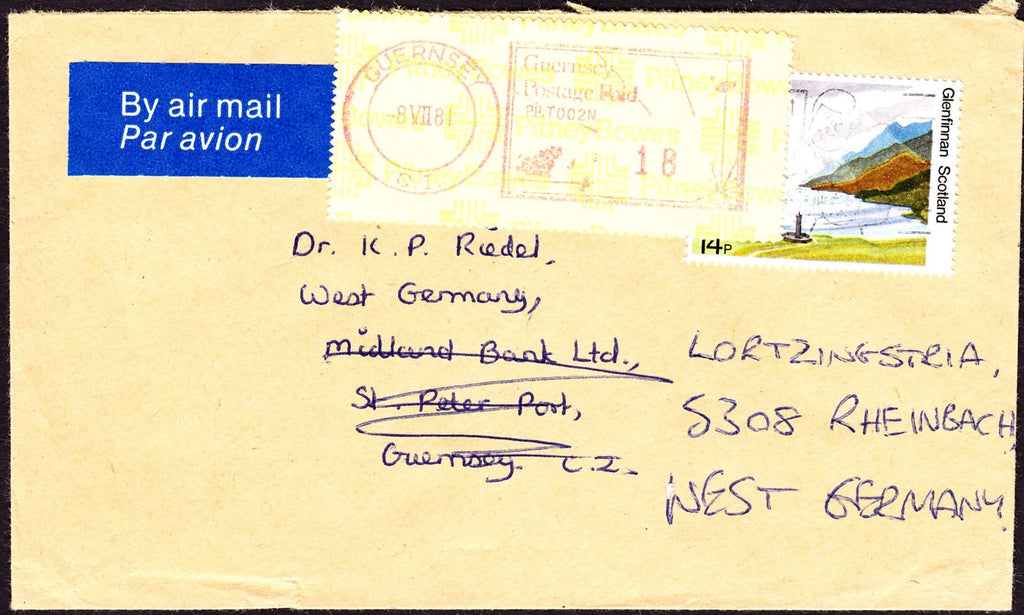 By air mail
Par avion
GUERNSEY
8 VII 81
C.I.
Guernsey
Postage Paid
PB.T002N
18
Pitney Bowes
Glenfinnan Scotland
14P
Dr. K. P. Riedel,
West Germany,
Midland Bank Ltd.,
St. Peter Port,
Guernsey. C.I.
LORTZINGSTR 1A,
5308 RHEINBACH
WEST GERMANY.